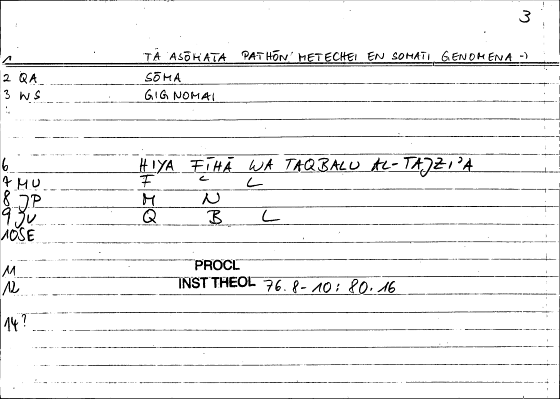 3
1 TA ASŌMATA PATHŌN METECHEI EN SOMATI GENOMENA -)
2 QA SŌMA
3 WS GIGNOMAI
6 HIYA FĪHĀ WA TAQBALU AL-TAJZI'A
7 MU F C L
8 JP M N
9 JV Q B L
10 SE
11 PROCL
12 INST THEOL 76.8-10: 80.16
14?